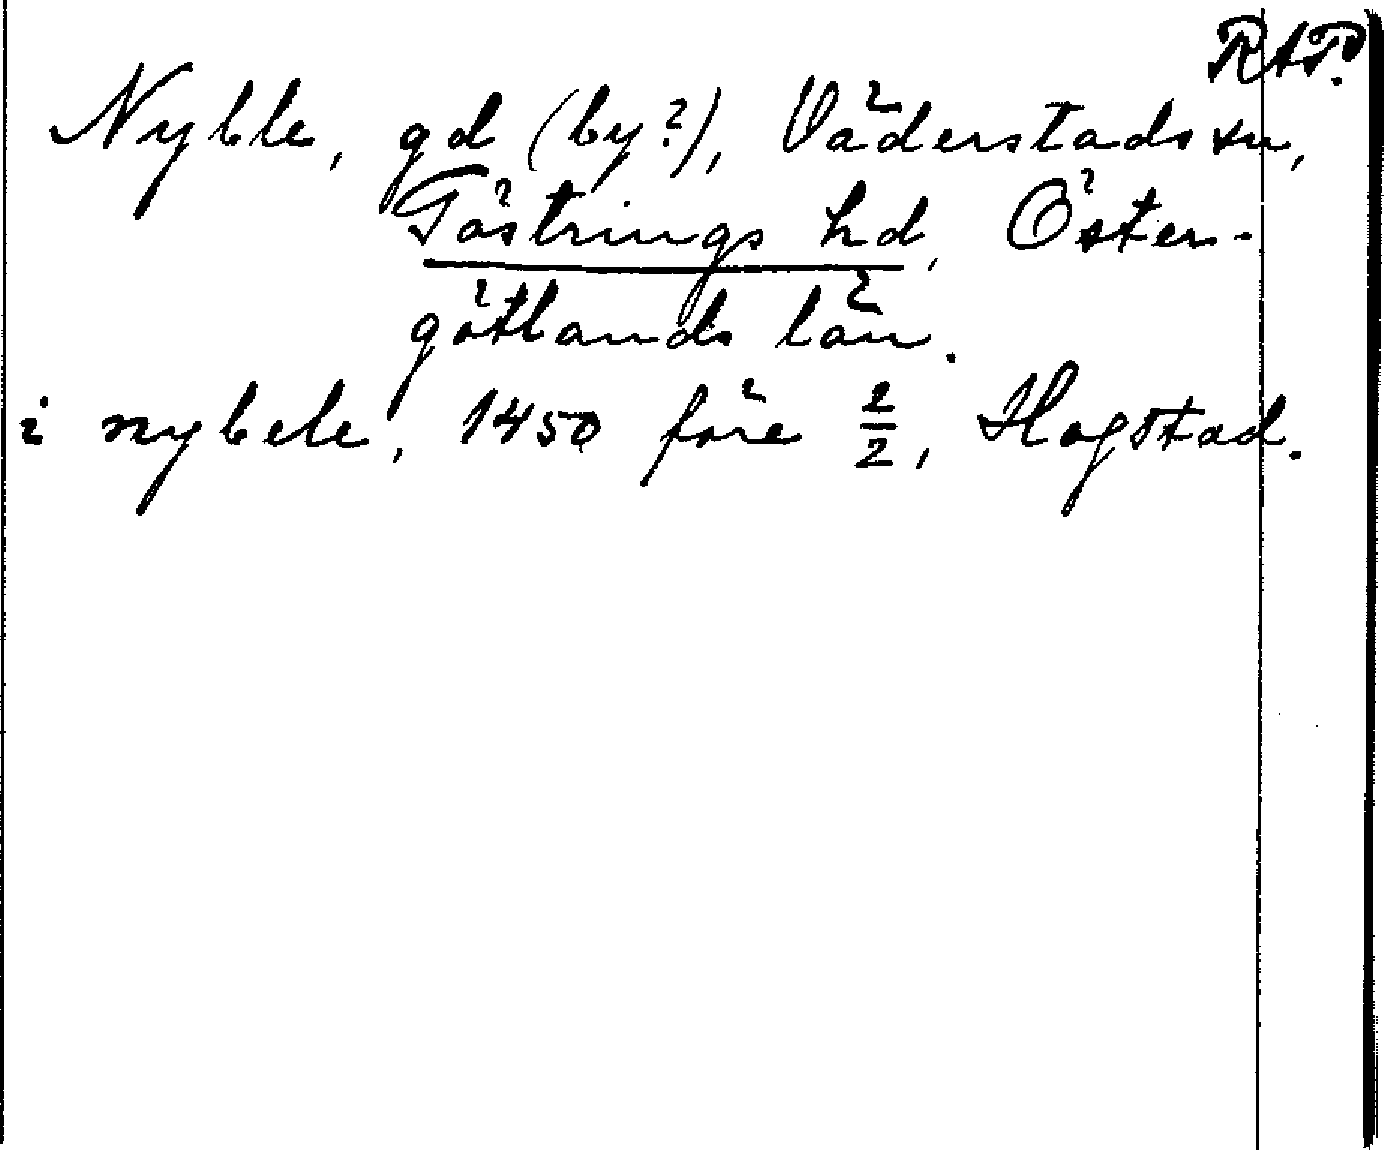 RAP.
Nyble, gd (by?), Väderstads sn,
Göstrings hd, Öster-
götlands län.
i nybele, 1450 före 2/2, Hogstad.